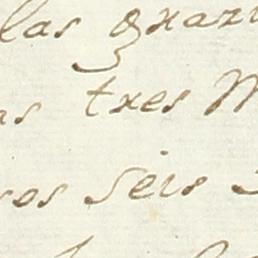 las graz
as tres M
os seis